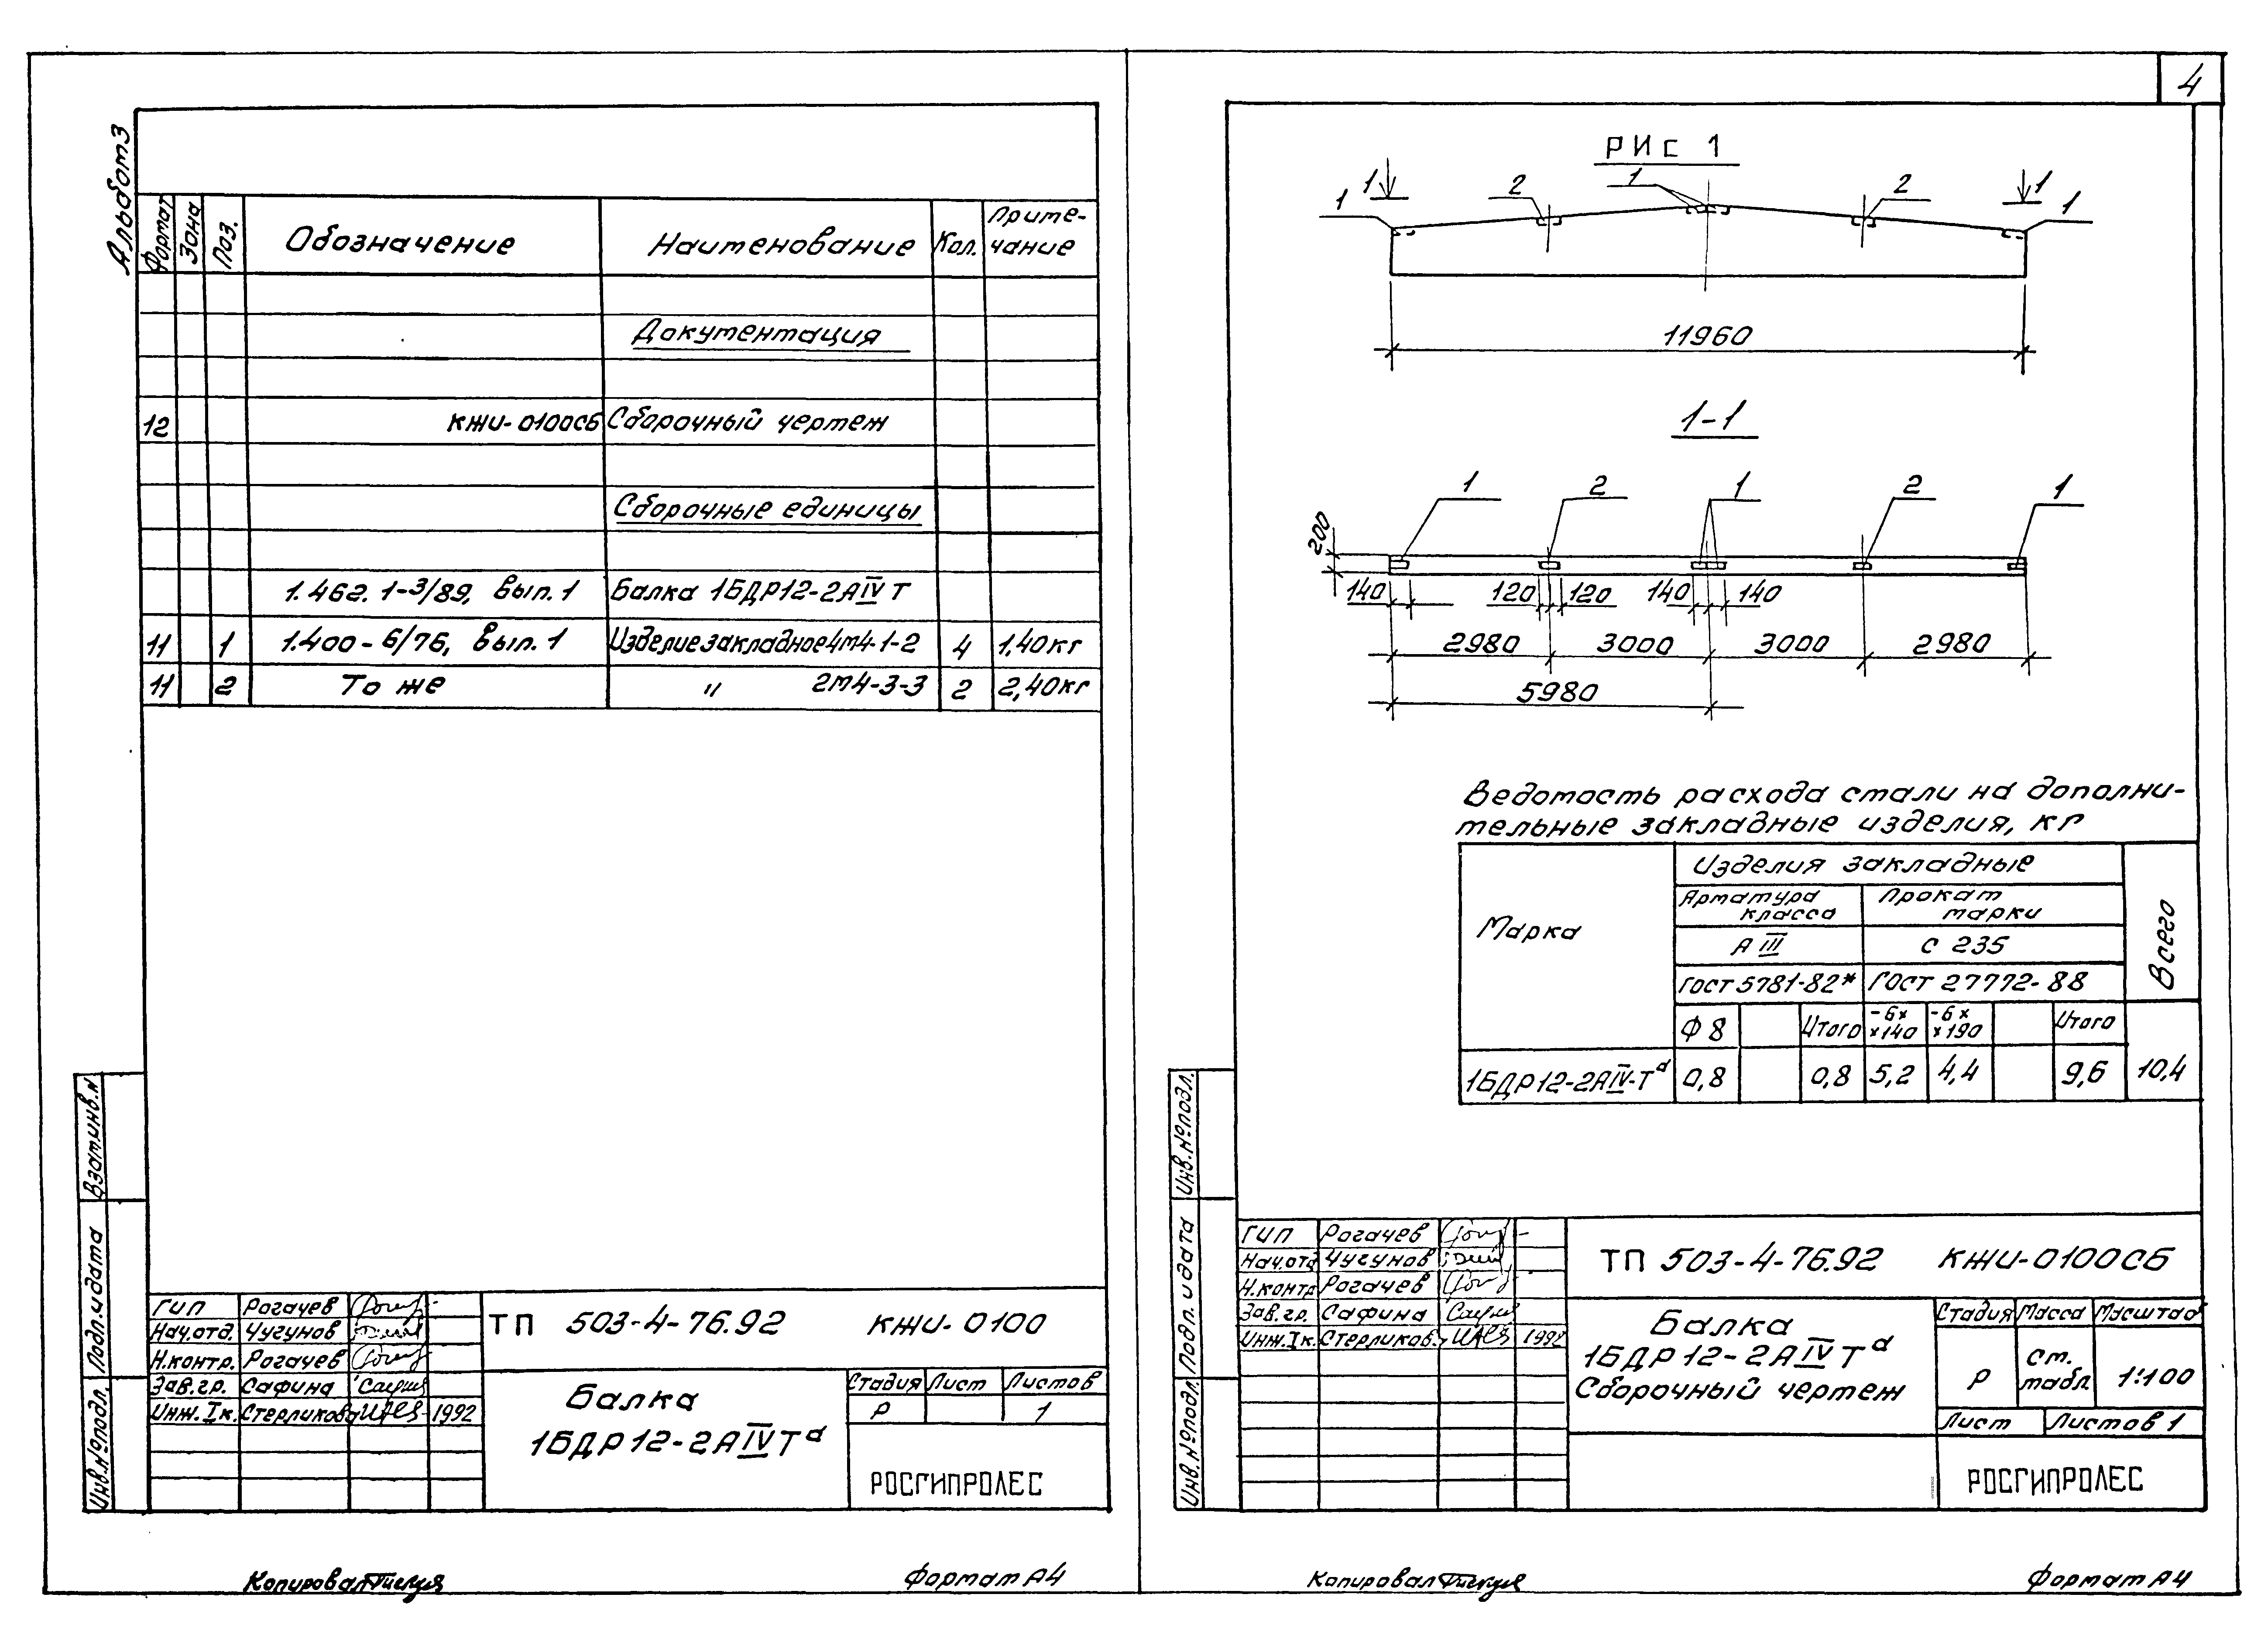 4
Альбом 3
Формат Зона Поз. Обозначение Наименование Кол. Приме-
чание
Документация
12 КЖИ-0100СБ Сборочный чертеж
Сборочные единицы
1.462.1-3/89, вып.1 Балка 1БДР12-2АIVТ
11 1 1.400-6/76, вып.1 Изделие закладное 4М4-1-2 4 1,40кг
11 2 То же " 2М4-3-3 2 2,40кг
Взам.инв.N
Подп. и дата
Инв.№подл.
ГИП Рогачев
Нач.отд. Чугунов
Н.контр. Рогачев
Зав.гр. Сафина
Инж.Iк. Стерликова 1992
ТП 503-4-76.92 КЖИ-0100
Балка
1БДР12-2АIVТа
Стадия Лист Листов
Р 1
РОСГИПРОЛЕС
Копировал
Формат А4
РИС 1
1 1 2 1 2 1 1
11960
1-1
1 2 1 2 1
200
140 120 120 140 140
2980 3000 3000 2980
5980
Ведомость расхода стали на дополни-
тельные закладные изделия, кг
Марка
Изделия закладные
Арматура
класса
Прокат
марки
Всего
А III С 235
ГОСТ 5781-82* ГОСТ 27772-88
Ф8 Итого -6×
×140 -6×
×190 Итого
1БДР12-2АIV-Та 0,8 0,8 5,2 4,4 9,6 10,4
Инв.№подл.
Подп. и дата
Инв.№подл.
ГИП Рогачев
Нач.отд Чугунов
Н.контр Рогачев
Зав.гр. Сафина
Инж.Iк. Стерликов. 1992
ТП 503-4-76.92 КЖИ-0100СБ
Балка
1БДР12-2АIVТа
Сборочный чертеж
Стадия Масса Масштаб
Р см.
табл. 1:100
Лист Листов 1
РОСГИПРОЛЕС
Копировал
Формат А4